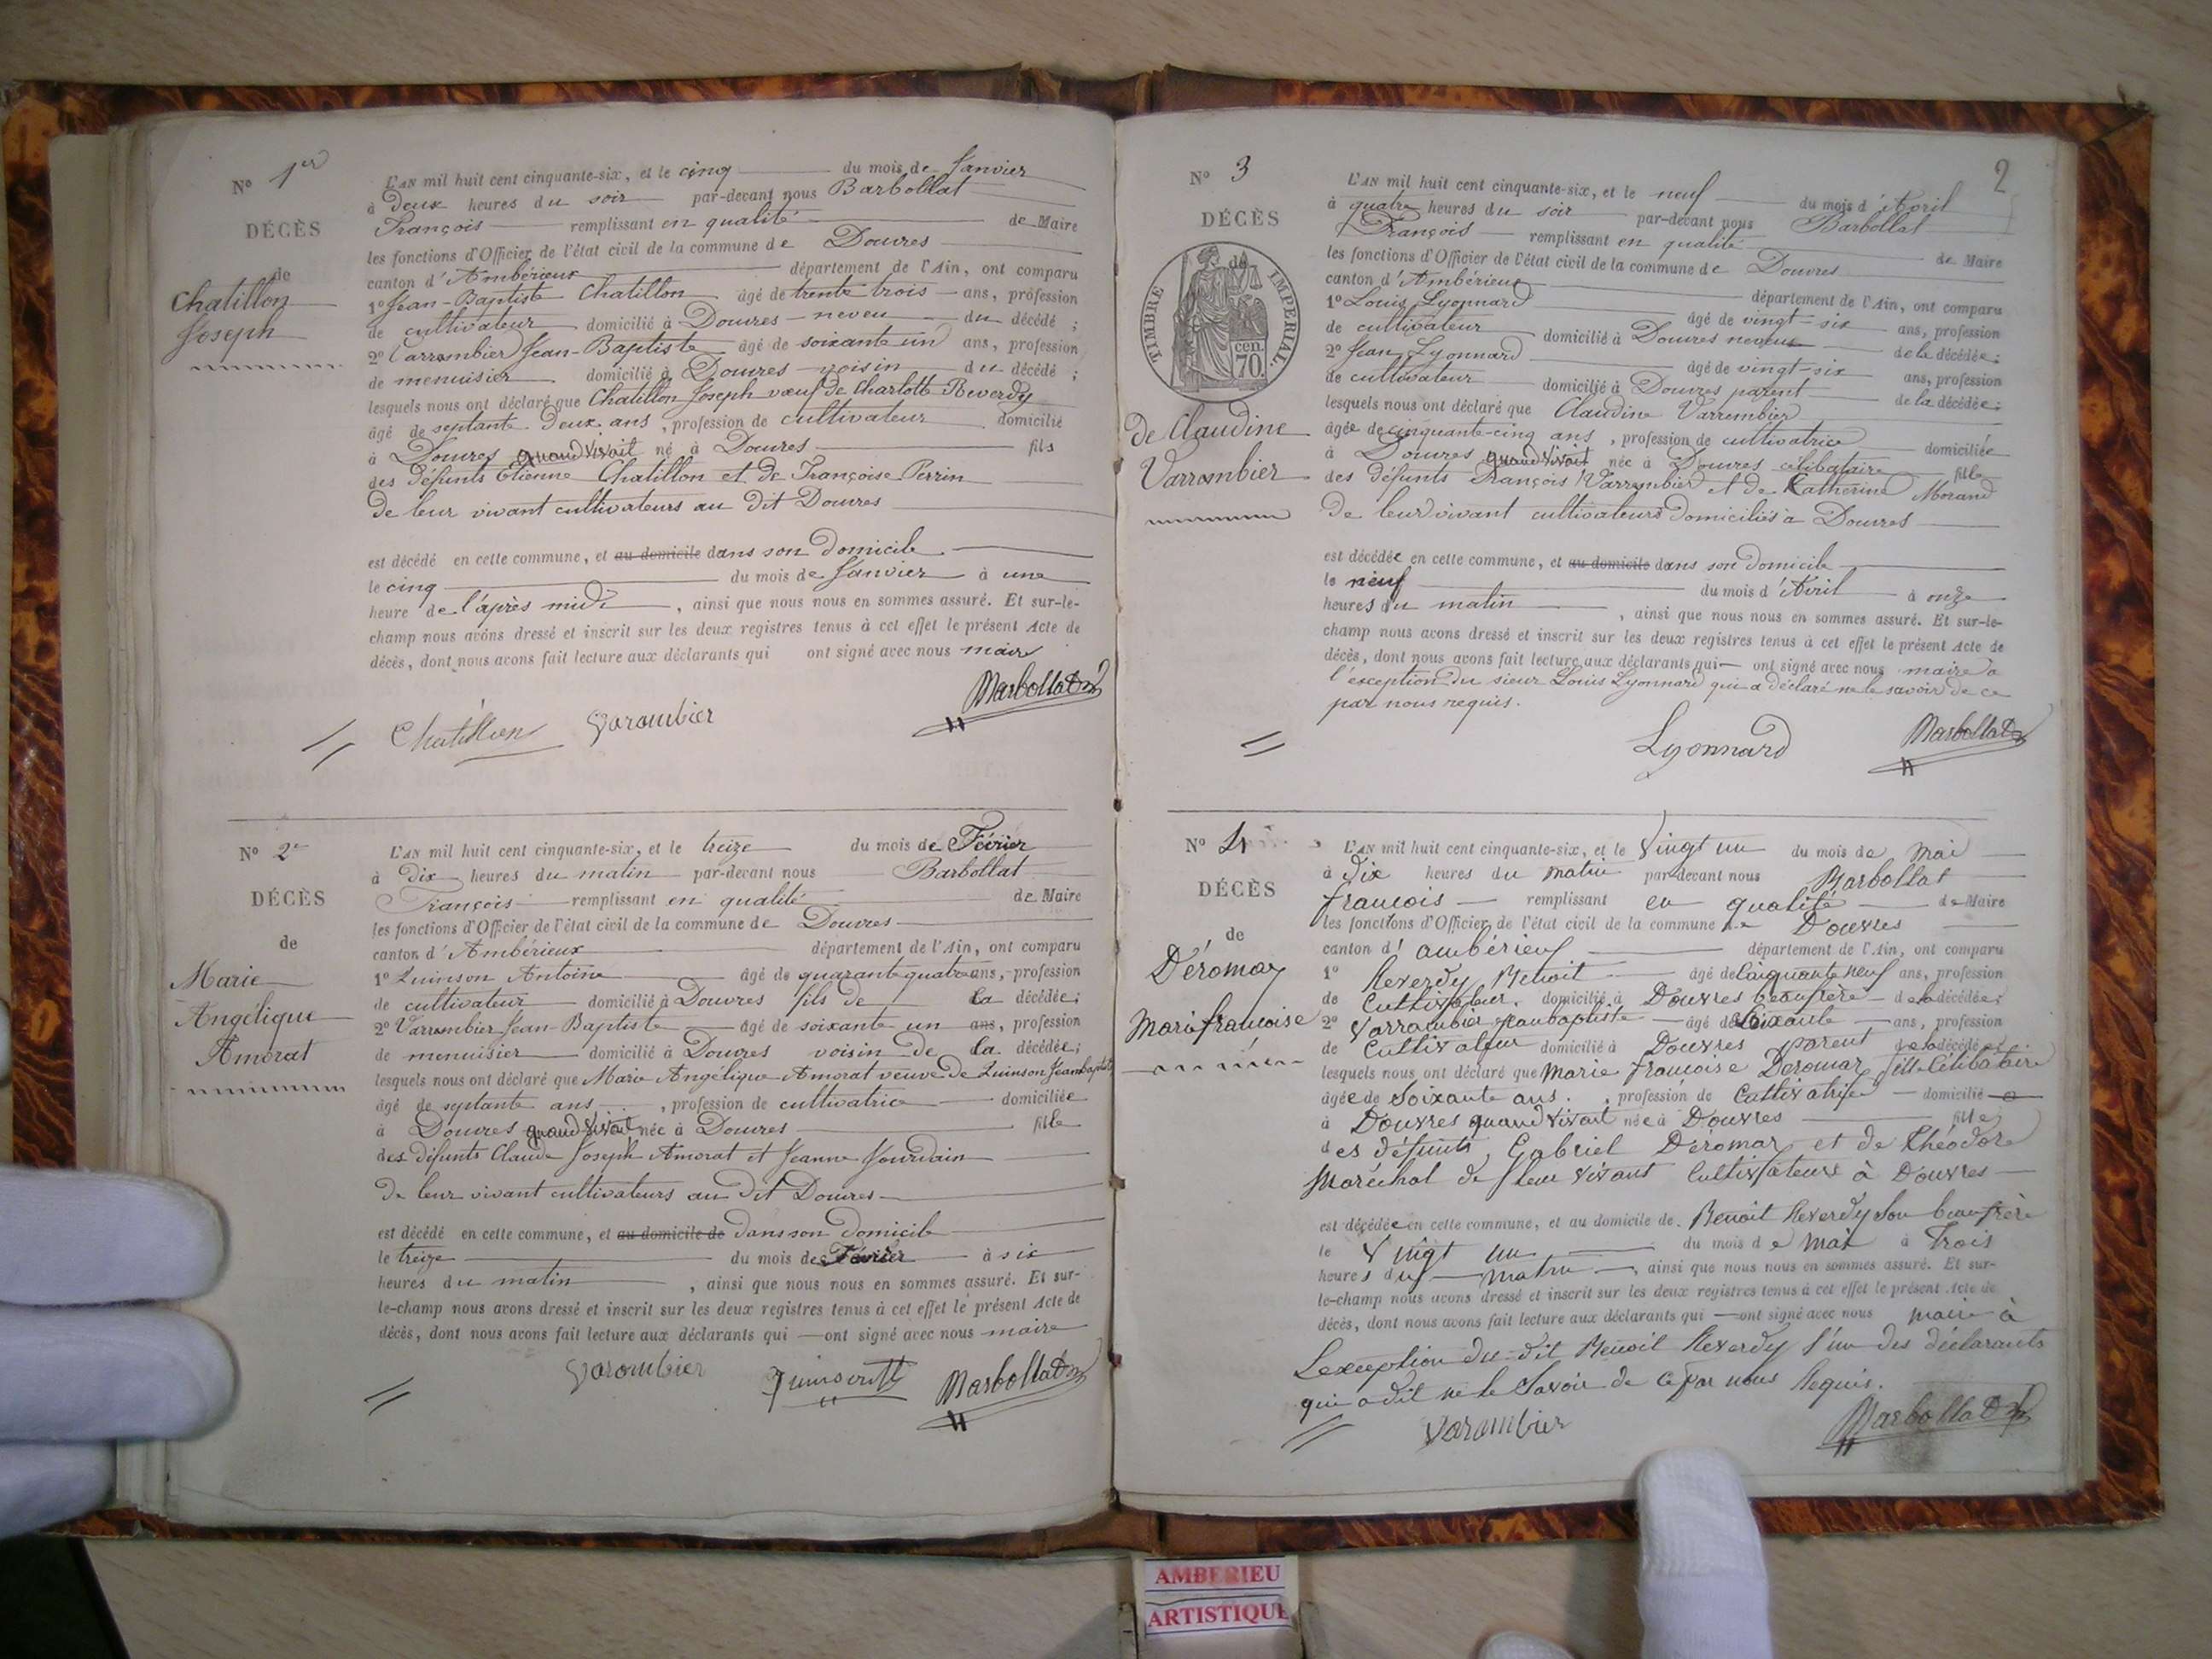 N° 1er
DÉCÈS
de
Chatillon
Joseph
L'AN mil huit cent cinquante-six, et le cinq du mois de Janvier
à deux heures du soir par-devant nous Barbollat
François remplissant en qualité de Maire
les fonctions d'Officier de l'état civil de la commune de Douvres
canton d'Ambérieux département de l'Ain, ont comparu
1° Jean-Baptiste Chatillon âgé de trente trois ans, profession
de cultivateur domicilié à Douvres neveu du décédé ;
2° Varrambier Jean-Baptiste âgé de soixante un ans, profession
de menuisier domicilié à Douvres voisin du décédé ;
lesquels nous ont déclaré que Chatillon Joseph vœuf de Charlotte Reverdy
âgé de septante deux ans, profession de cultivateur domicilié
à Douvres quand vivait né à Douvres fils
des défunts Etienne Chatillon et de Françoise Perrin
de leur vivant cultivateurs au dit Douvres
est décédé en cette commune, et au domicile dans son domicile
le cinq du mois de Janvier à une
heure de l'après midi, ainsi que nous nous en sommes assuré. Et sur-le-
champ nous avons dressé et inscrit sur les deux registres tenus à cet effet le présent Acte de
décès, dont nous avons fait lecture aux déclarants qui ont signé avec nous maire
Chatillon Varombier Barbollat
N° 2e
DÉCÈS
de
Marie
Angélique
Amorat
L'AN mil huit cent cinquante-six, et le treize du mois de Février
à dix heures du matin par-devant nous Barbollat
François remplissant en qualité de Maire
les fonctions d'Officier de l'état civil de la commune de Douvres
canton d'Ambérieux département de l'Ain, ont comparu
1° Quinson Antoine âgé de quarante quatre ans, profession
de cultivateur domicilié à Douvres fils de la décédée ;
2° Varrambier Jean-Baptiste âgé de soixante un ans, profession
de menuisier domicilié à Douvres voisin de la décédée ;
lesquels nous ont déclaré que Marie Angélique Amorat veuve de Quinson Jeanbaptiste
âgé de septante ans, profession de cultivatrice domiciliée
à Douvres quand vivait née à Douvres fille
des défunts Claude Joseph Amorat et Jeanne Jourdain
de leur vivant cultivateurs au dit Douvres
est décédé en cette commune, et au domicile de dans son domicile
le treize du mois de Février à six
heures du matin, ainsi que nous nous en sommes assuré. Et sur-
le-champ nous avons dressé et inscrit sur les deux registres tenus à cet effet le présent Acte de
décès, dont nous avons fait lecture aux déclarants qui ont signé avec nous maire
Varombier Barbollat
2
N° 3
DÉCÈS
TIMBRE IMPERIAL
cen. 70.
de Claudine
Varrambier
L'AN mil huit cent cinquante-six, et le neuf du mois d'Avril
à quatre heures du soir par-devant nous Barbollat
François remplissant en qualité de Maire
les fonctions d'Officier de l'état civil de la commune de Douvres
canton d'Ambérieux département de l'Ain, ont comparu
1° Louis Lyonnard âgé de vingt-six ans, profession
de cultivateur domicilié à Douvres neveux de la décédée ;
2° Jean Lyonnard âgé de vingt-six ans, profession
de cultivateur domicilié à Douvres parent de la décédée ;
lesquels nous ont déclaré que Claudine Varrembier
âgée de cinquante-cinq ans, profession de cultivatrice domiciliée
à Douvres quand vivait née à Douvres célibataire fille
des défunts François Varrembier et de Katherine Morand
de leur vivant cultivateurs domiciliés à Douvres
est décédée en cette commune, et au domicile dans son domicile
le neuf du mois d'Avril à onze
heures du matin, ainsi que nous nous en sommes assuré. Et sur-le-
champ nous avons dressé et inscrit sur les deux registres tenus à cet effet le présent Acte de
décès, dont nous avons fait lecture aux déclarants qui ont signé avec nous maire a
l'exception du sieur Louis Lyonnard qui a déclaré ne le savoir de ce
par nous requis.
Lyonnard Barbollat
N° 4
DÉCÈS
de
Déromay
Marie françoise
L'AN mil huit cent cinquante-six, et le vingt un du mois de Mai
à dix heures du matin par-devant nous Barbollat
françois remplissant en qualité de Maire
les fonctions d'Officier de l'état civil de la commune de Douvres
canton d'ambérieux département de l'Ain, ont comparu
1° Reverdy Benoit âgé de Cinquante neuf ans, profession
de Cultivateur domicilié à Douvres beaufrère de la décédée ;
2° Varrambier jeanbaptiste âgé de Soixante ans, profession
de Cultivateur domicilié à Douvres parent de la décédée ;
lesquels nous ont déclaré que Marie françoise Deromar fille Célibataire
âgée de Soixante ans, profession de Cultivatrice domicilié
à Douvres quand vivait née à Douvres fille
des défunts, Gabriel Deromar et de Théodore
Maréchal de leur vivant Cultivateurs à Douvres
est décédée en cette commune, et au domicile de Benoit Reverdy Son beaufrère
le vingt un du mois de Mai à Trois
heures du matin, ainsi que nous nous en sommes assuré. Et sur-
le-champ nous avons dressé et inscrit sur les deux registres tenus à cet effet le présent Acte de
décès, dont nous avons fait lecture aux déclarants qui ont signé avec nous maire à
Lexception du dit Benoit Reverdy l'un des déclarants
qui a dit ne le Savoir de Ce par nous Requis.
Varombier Barbollat
AMBERIEU
ARTISTIQUE